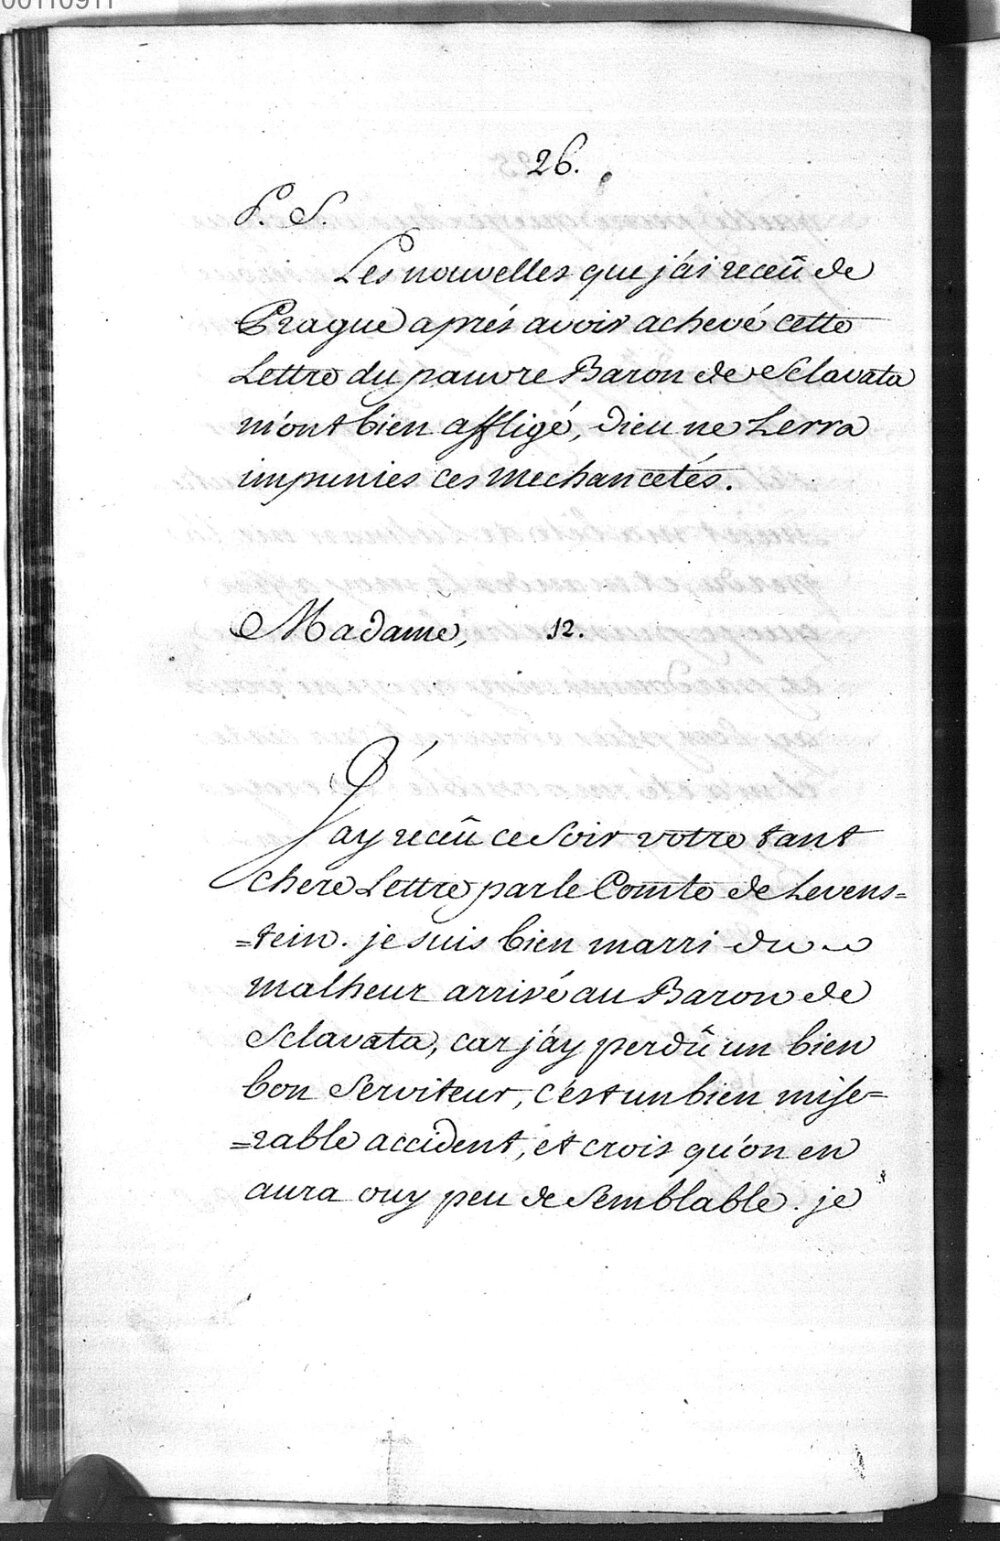 00110911
26.
P. S.
Les nouvelles que j'ai receû de
Prague aprés avoir achevé cette
Lettre du pauvre Baron de Sclavata
m'ont bien affligé, Dieu ne Lerra
impunies ces mechancetés.
Madame, 12.
J'ay receû ce Soir votre tant
chere Lettre par le Comte de Levens=
=tein. je suis bien marri du
malheur arrivé au Baron de
Sclavata, car j'ay perdû un bien
bon Serviteur, c'est un bien mise=
=rable accident, et crois qu'on en
aura ouy peu de Semblable. je